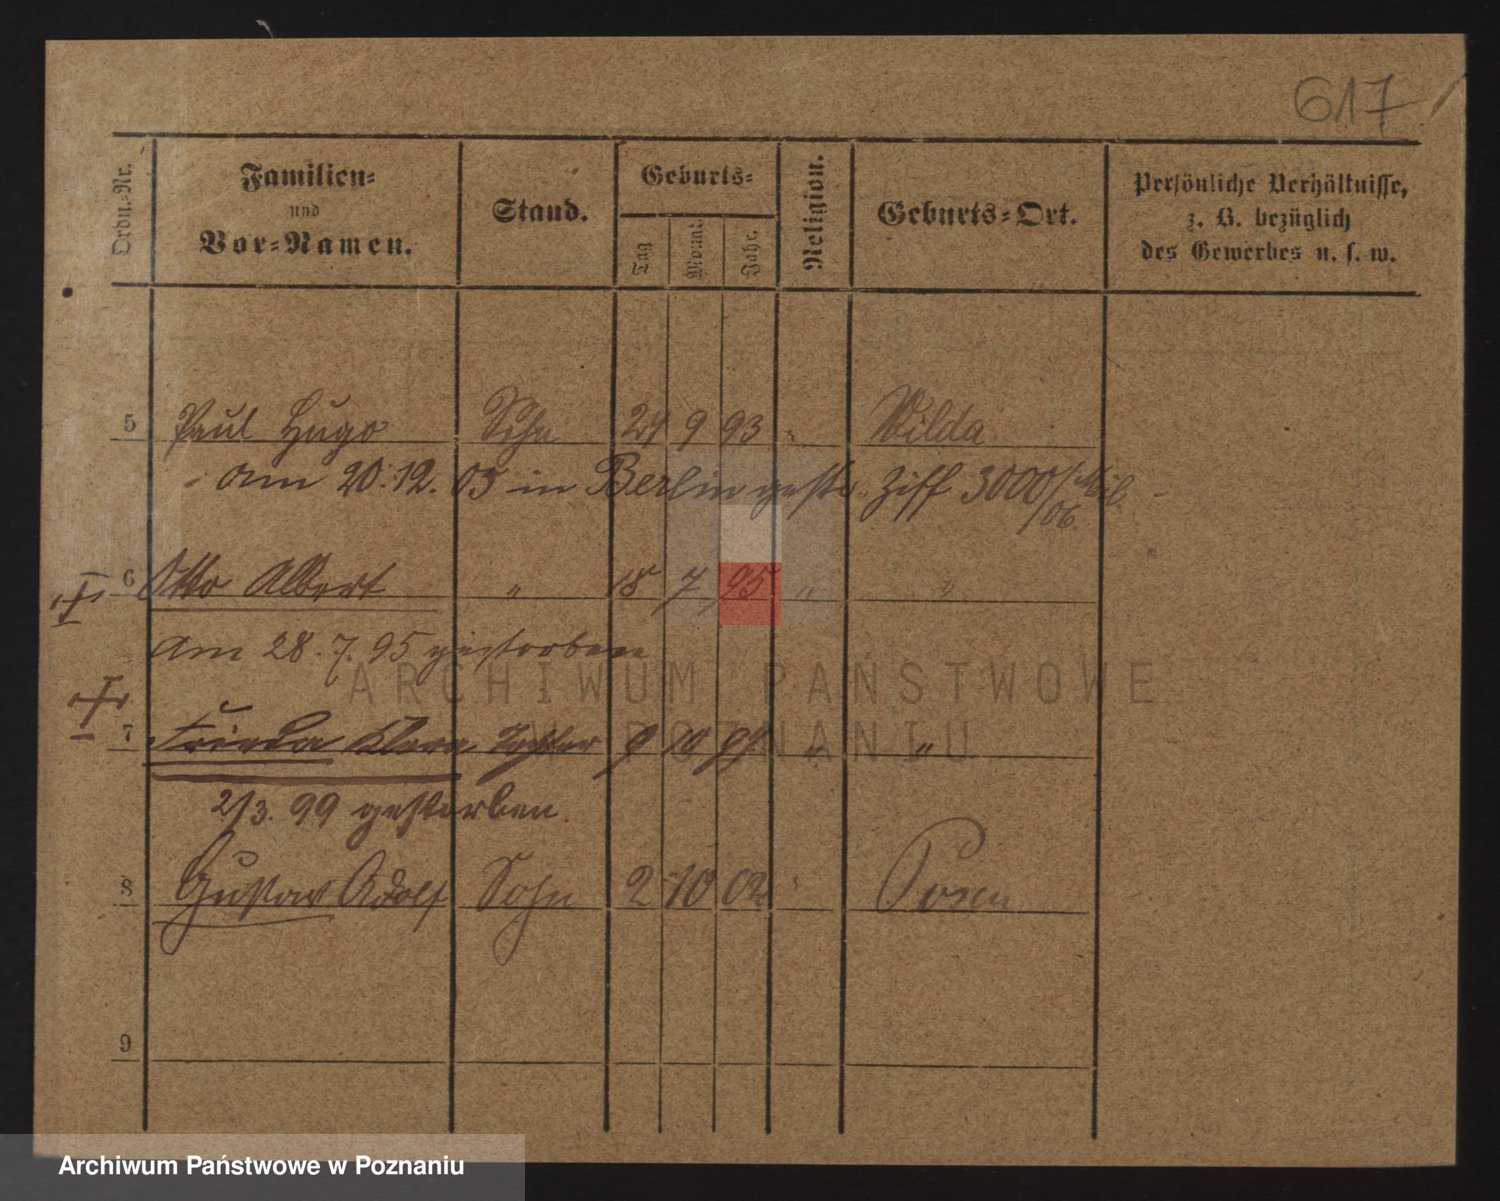 617
Ordn.-Nr.
Familien-
und
Vor-Namen.
Stand.
Geburts-
Tag
Monat
Jahr.
Religion.
Geburts-Ort.
Persönliche Verhältnisse,
z. B. bezüglich
des Gewerbes u. s. w.
5 Paul Hugo Sohn 24 9 93 " Wilda
am 20.12.05 in Berlin gestr. Ziff 3000/Mil.
/06.
6 Otto Albert " 18 7 95 " "
am 28.7.95 gestorben
ARCHIWUM PAŃSTWOWE
W POZNANIU
7 Frieda Klara Tochter 9 10 97 " "
2/3.99 gestorben.
8 Gustav Adolf Sohn 2 10 02 " Posen
9
Archiwum Państwowe w Poznaniu